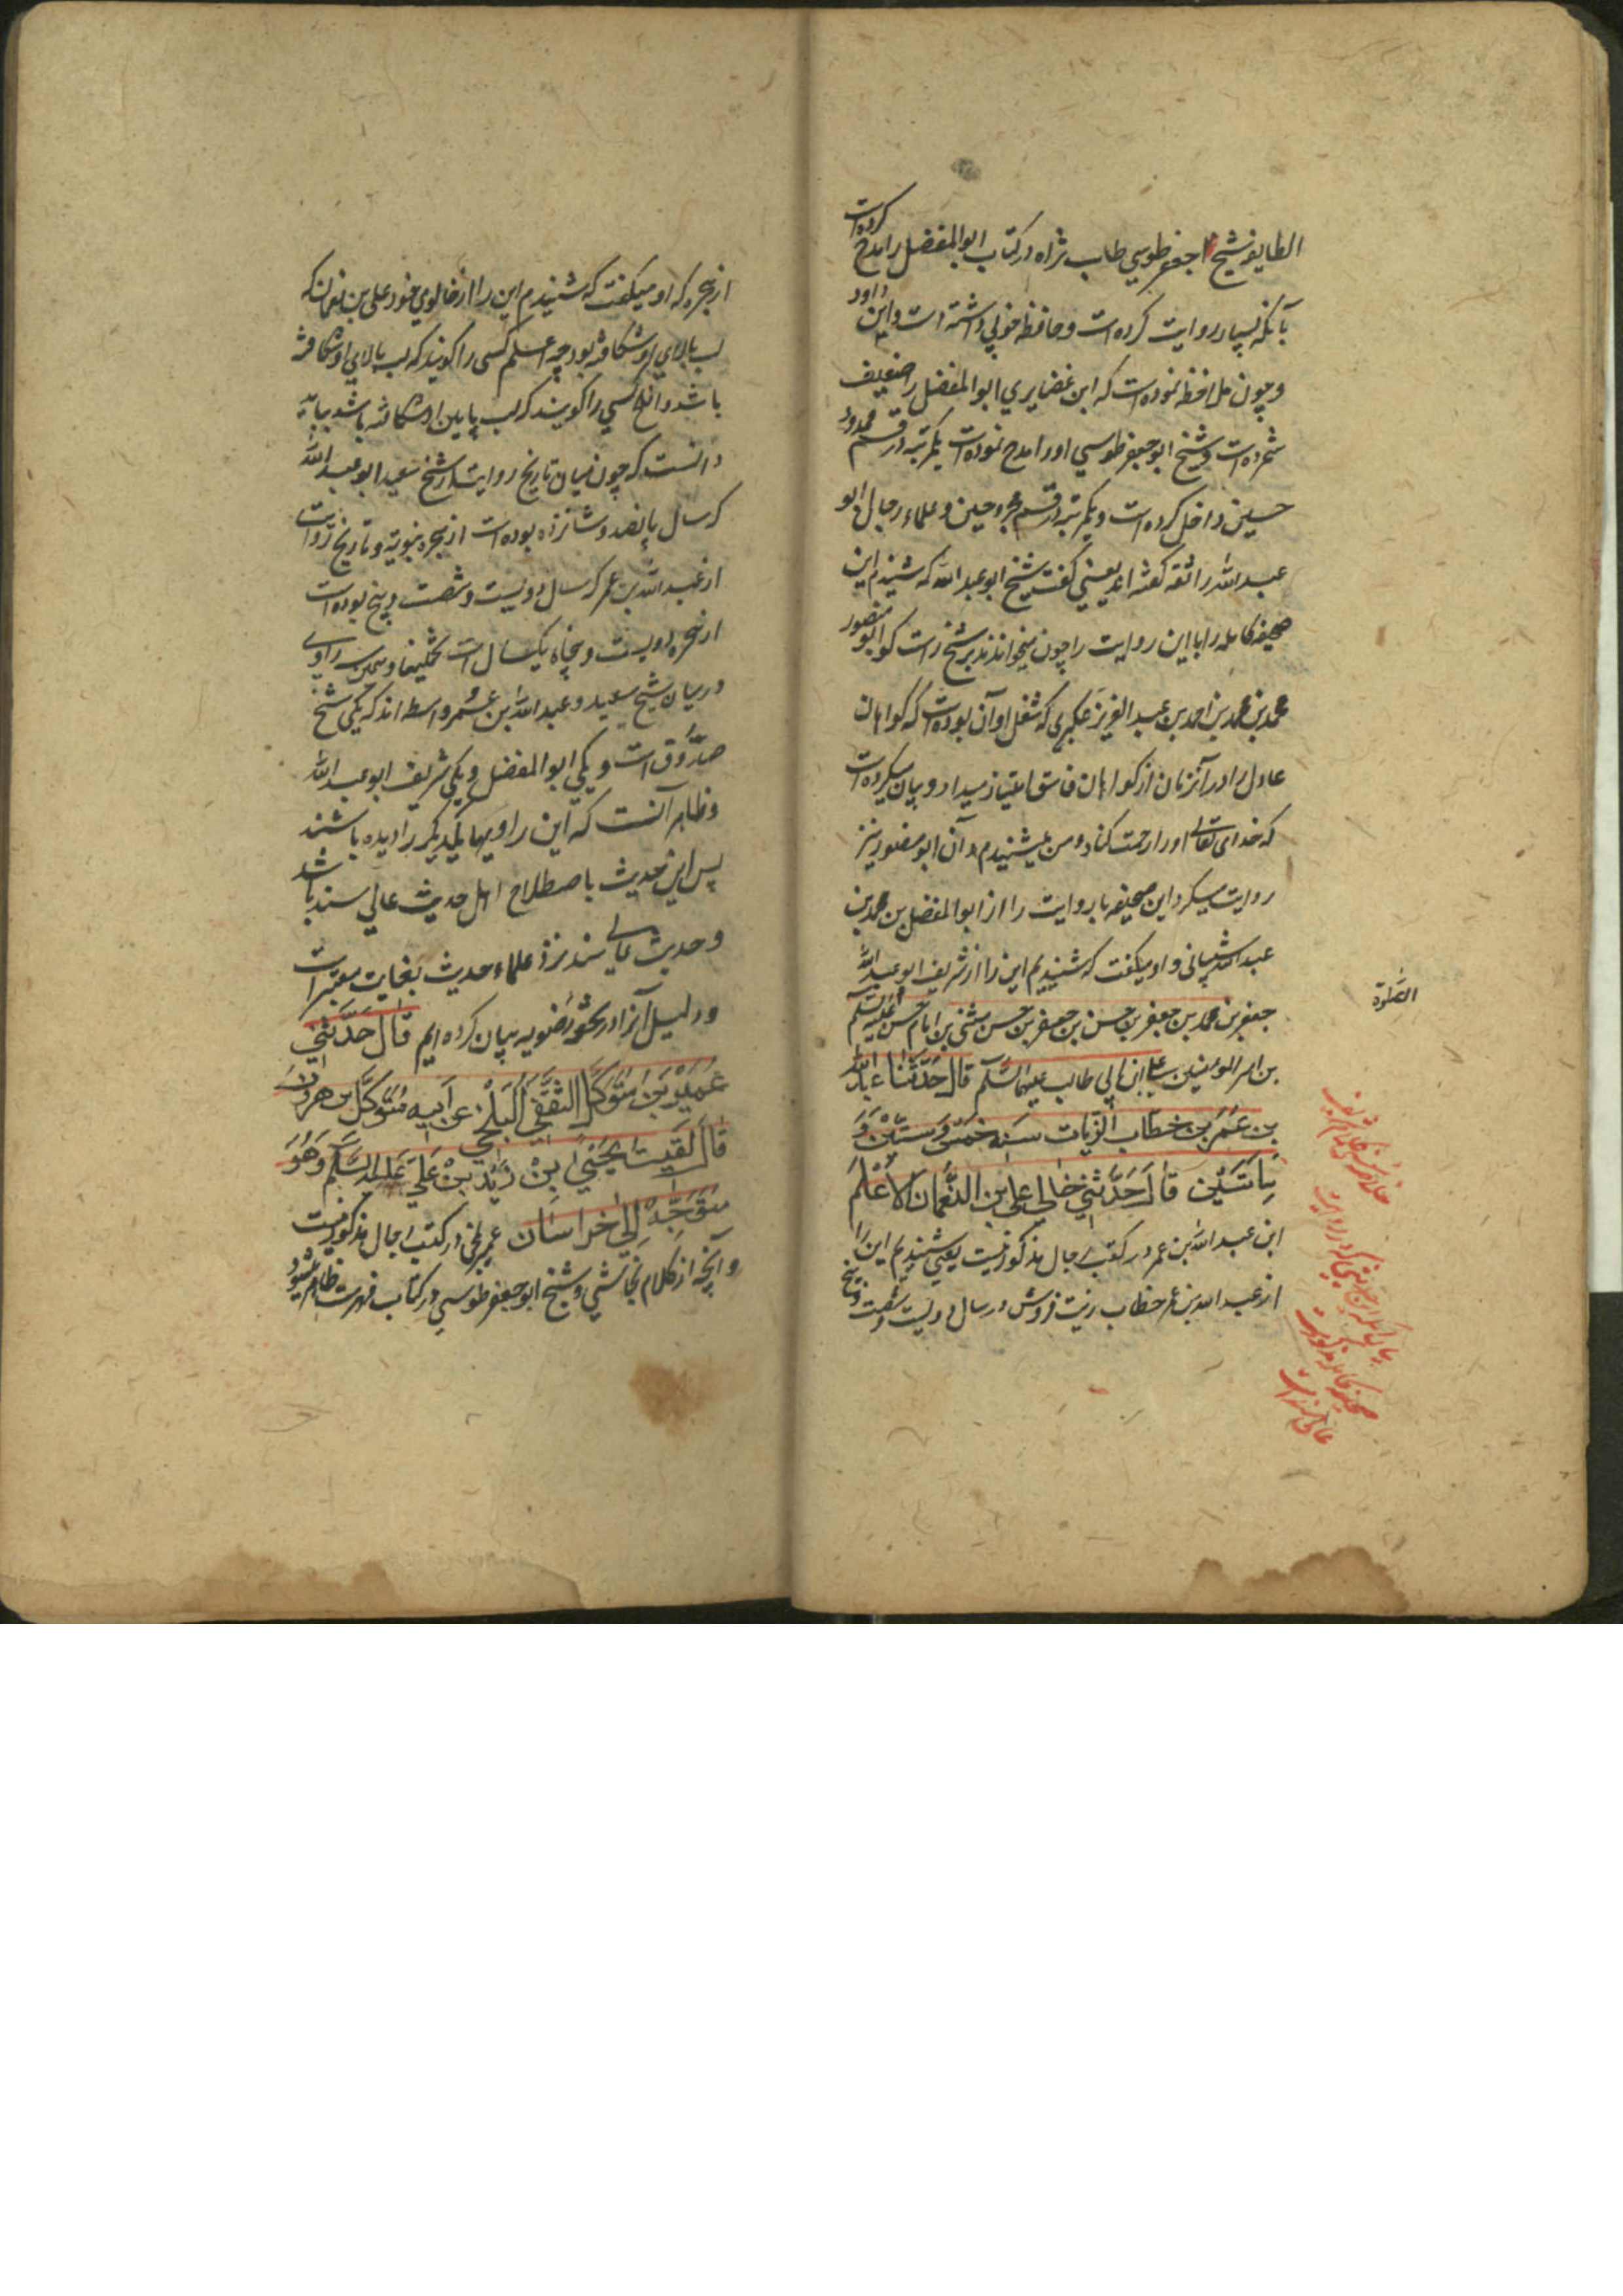 الطایفه شیخ ابا جعفر طوسي طاب ثراه در کتاب ابو المفضل را مدح کرده است
بآنکه بسیار روایت کرده است و حافظه خوبي داشته است و ابن داود
و چون ملاحظه نموده است که ابن غضایري ابو المفضل را ضعیف
شمرده است و شیخ ابو جعفر طوسي او را مدح نموده است یکمرتبه در قسم ممدوحین
داخل کرده است و یکمرتبه در قسم مجروحین و علماء رجال ابو
عبد الله را ثقه گفته اند یعني گفت شیخ ابو عبد الله که شنیدم این
صحیفه کامله را با این روایت را چون میخواندند بر شیخ راست گو ابو منصور
محمد بن محمد بن احمد بن عبد العزیز عکبري که شغل او آن بوده است که گواهان
عادل را در آنزمان از گواهان فاسق امتیاز میداد و بیان میکرده است
که خدای تعالی او را رحمت کناد و من میشنیدم و آن ابو منصور نیز
روایت میکرد این صحیفه با روایت را از ابو المفضل بن محمد بن
عبد الله شیبانی و او میگفت که شنیدیم این را از شریف ابو عبد الله
جعفر بن محمد بن جعفر بن حسن بن جعفر بن حسن مثنی بن امام حسن علیه السلم
بن امیر المومنین علی ابن ابي طالب علیهما السلم قال حَدَّثَنا عبد الله
بن عُمَر بن خطاب الزیات سَنَه خمس و ستّین وَ
مِاَتَیْن قالَ حَدَّثَنِي خالي علي ابن النُّعمان الاَعْلَم
ابن عبد الله بن عمر در کتب رجال مذکور نیست یعني شنیدیم این را
از عبد الله بن عمر خطاب زیت فروش در سال دویست و شصت و پنج
الصَّلوة
از هجره که او میگفت که شنیدم این را از خالوي خود علی بن نعمان که
لب بالاي او شکافته بود چه اعلم کسی را گویند که لب بالاي او شکافته
باشد و افلح کسي را گویند که لب پایین او شکافته باشد بباید
دانست که چون میان تاریخ روایت از شیخ سعید ابو عبد الله
که سال پانصد و شانزده بوده است از هجره نبویه و تاریخ روایت
از عبد الله بن عمر که سال دویست و شصت و پنج بوده است
از هجره دویست و پنجاه یکسال است تخمینا و سه راوي
در میان شیخ سعید و عبد الله ابن عُمر واسطه اند که یکي شیخ
صدُوق است و یکي ابو المفضل و یکي شریف ابو عبد الله
و ظاهر آنست که این راویها یکدیگر را دیده باشند
پس این حدیث باصطلاح اهل حدیث عالي سند باشد
و حدیث عالي سند نزد علماء حدیث بغایت معتبر است
و دلیل آنرا در بیان کرده ایم قال حَدَّثَنِي
عُمَیْر بْن مُتَوَکّل الثَّقَفِي البَلْخِي عن اَبیه مُتَوکّل بن هرون
قالَ لَقیتُ یَحْیيٰ بْن زَیْد بْن عَلي عَلَیه السَّلم وَ هُوَ
مُتَوَجِّهٌ إِلي خراسان عمیر بلخي در کتب رجال مذکور نیست
و آنچه از کلام نجاشي و شیخ ابو جعفر طوسي در کتاب فهرست ظاهر میشود